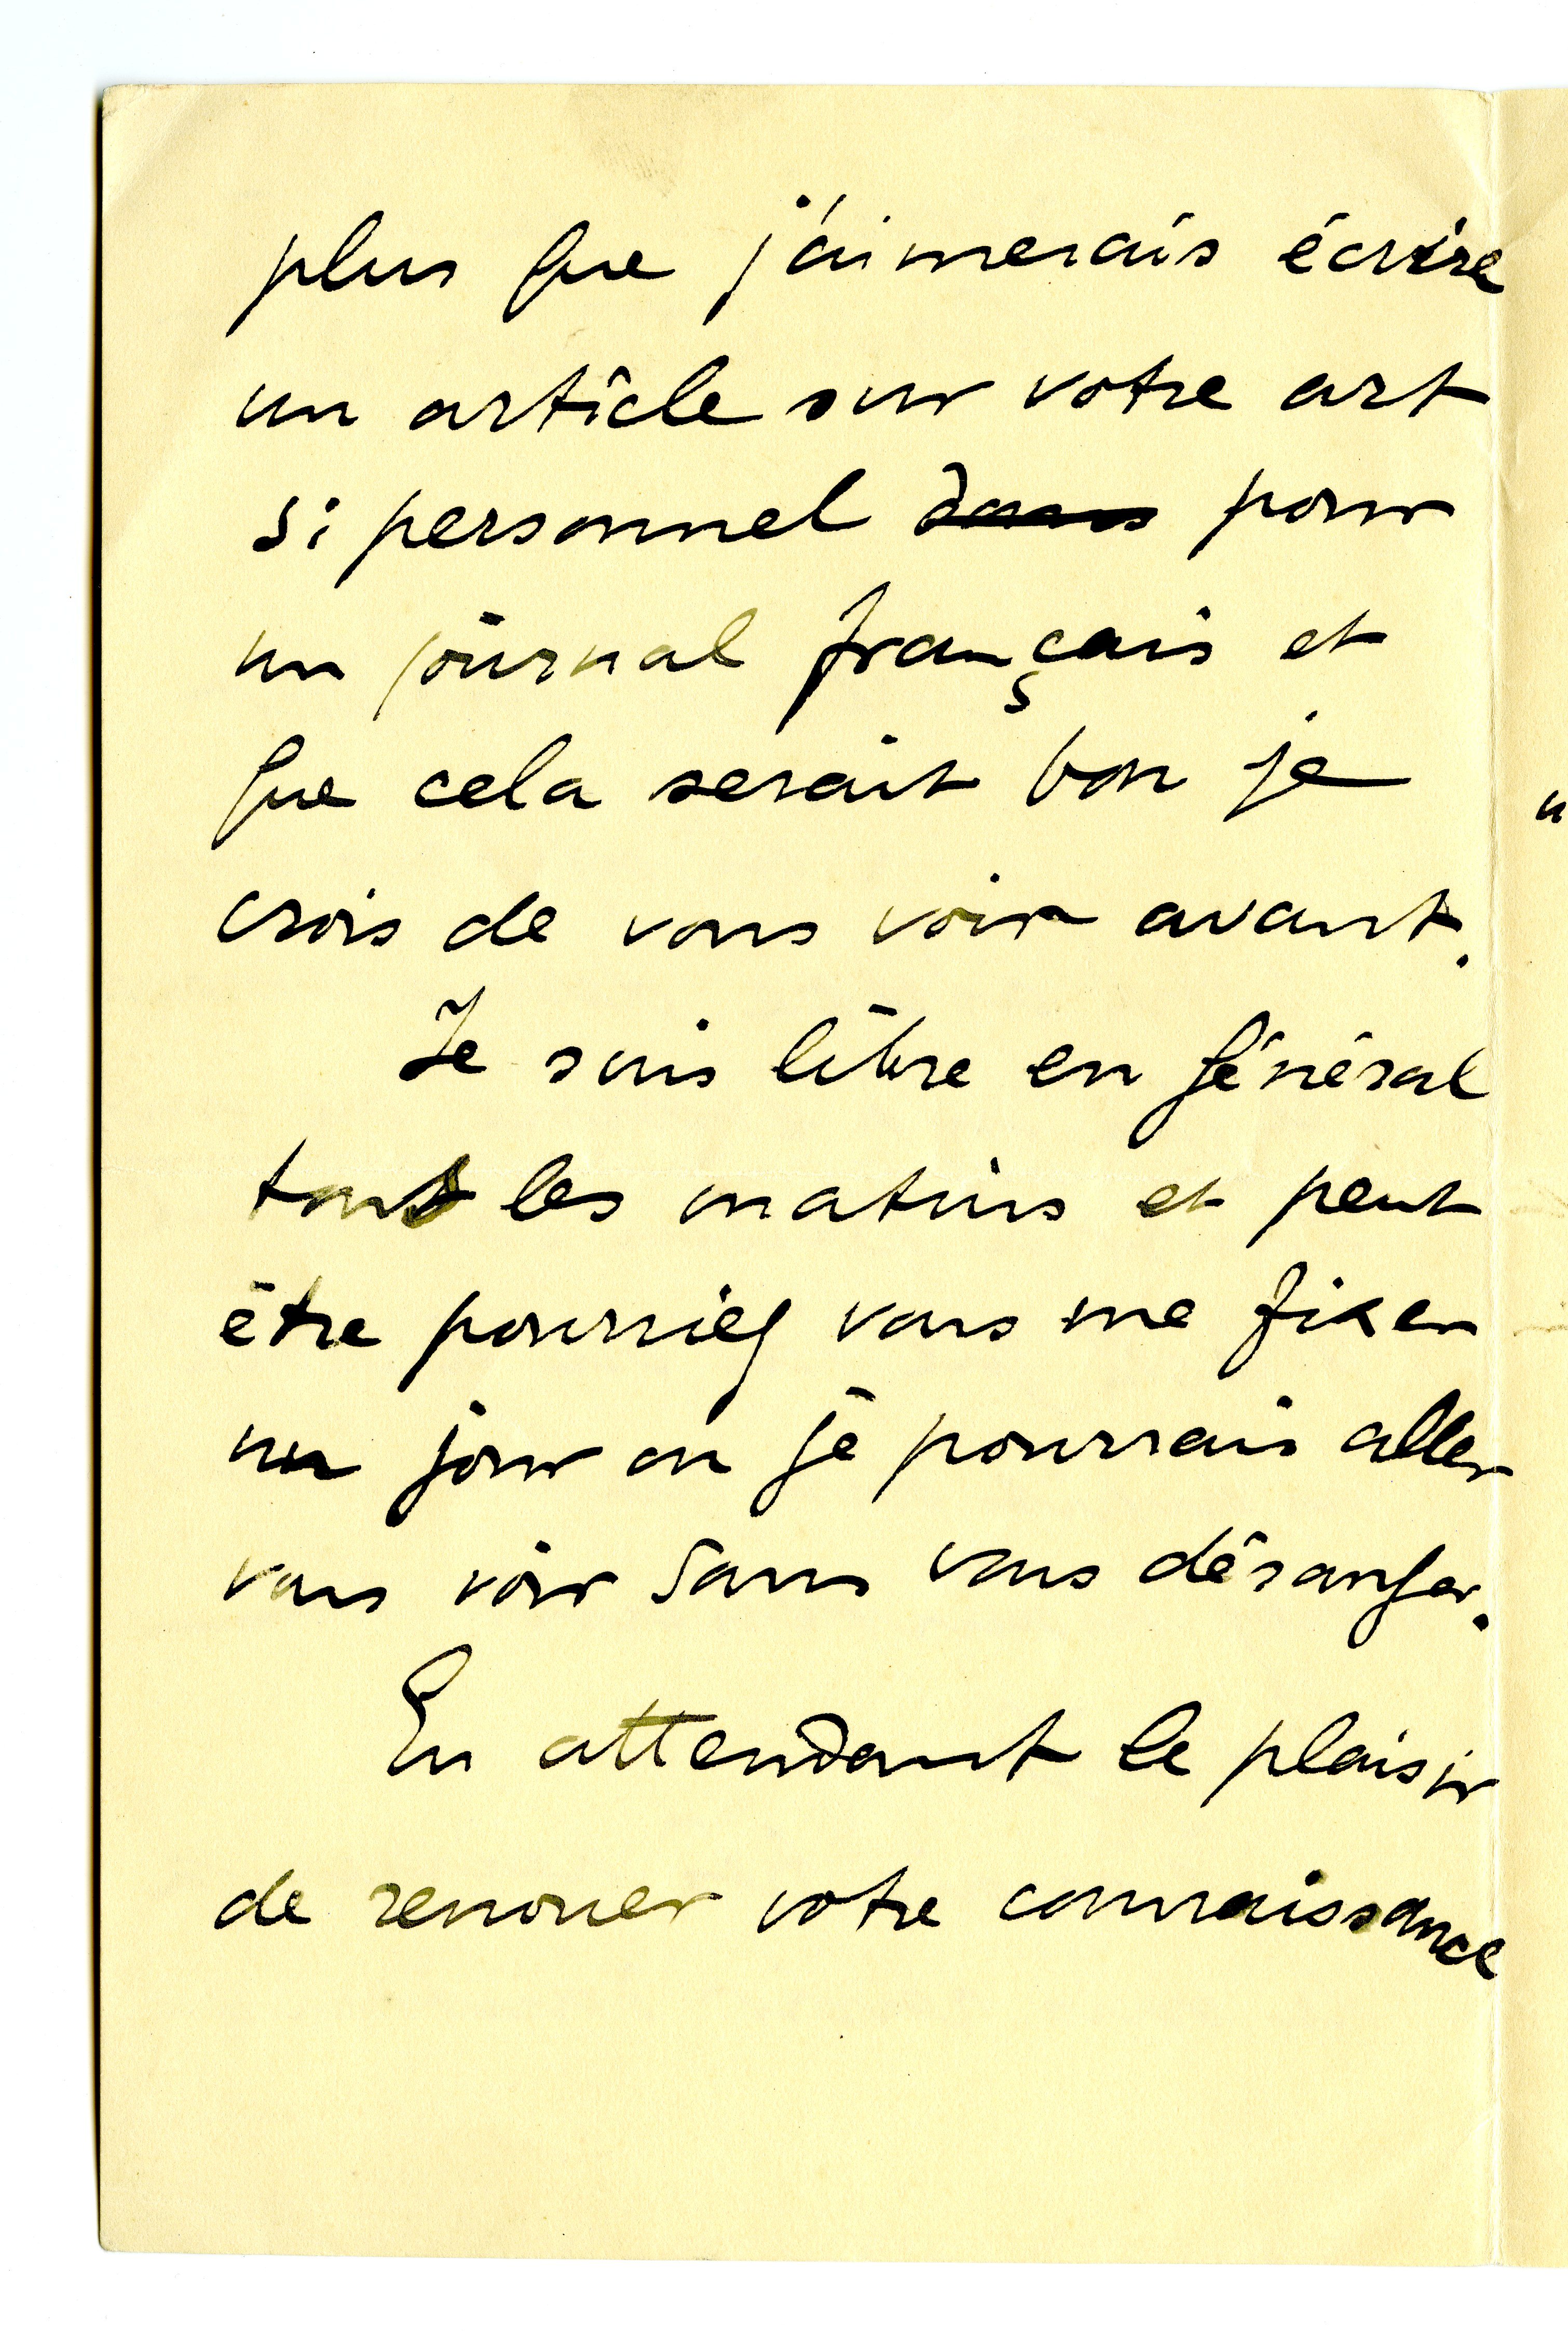 plus que j'aimerais écrire
un article sur votre art
si personnel dans pour
un journal français et
que cela serait bon je
crois de vous voir avant.
Je suis libre en général
tous les matins et peut
être pourriez vous me fixer
un jour ou je pourrais aller
vous voir sans vous déranger.
En attendant le plaisir
de renouer votre connaissance